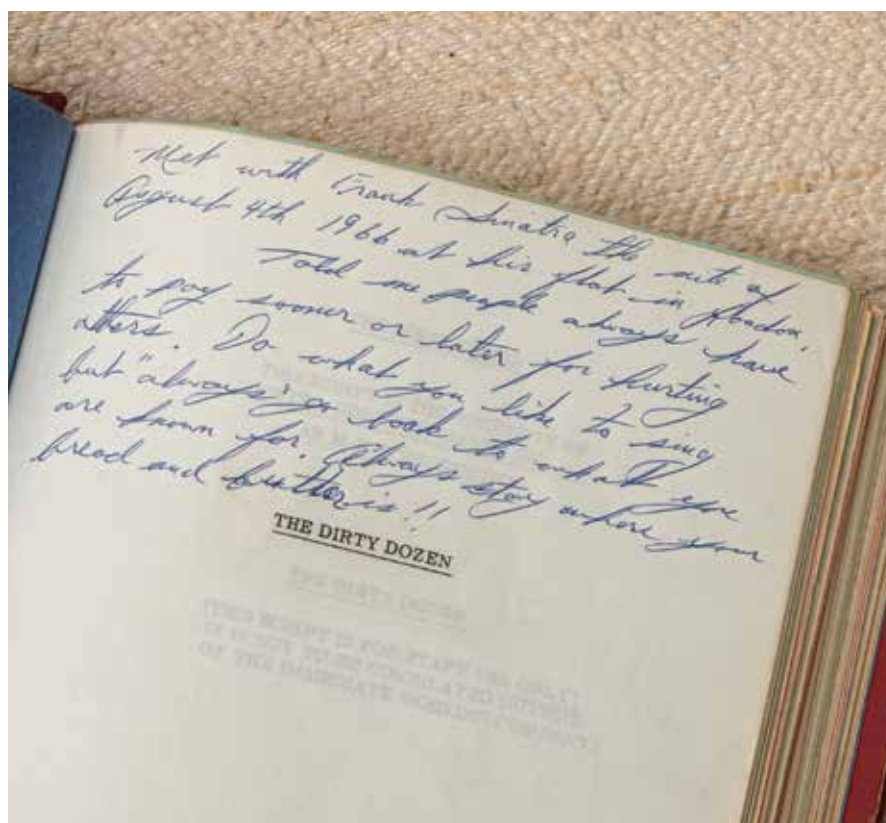 Met with Frank Sinatra the nite of
August 4th 1966 at his flat in London.
Told me people always have
to pay sooner or later for hurting
others. Do what you like to sing
but "always" go back to what you
are known for. Always stay where your
bread and butter is!!
THE DIRTY DOZEN